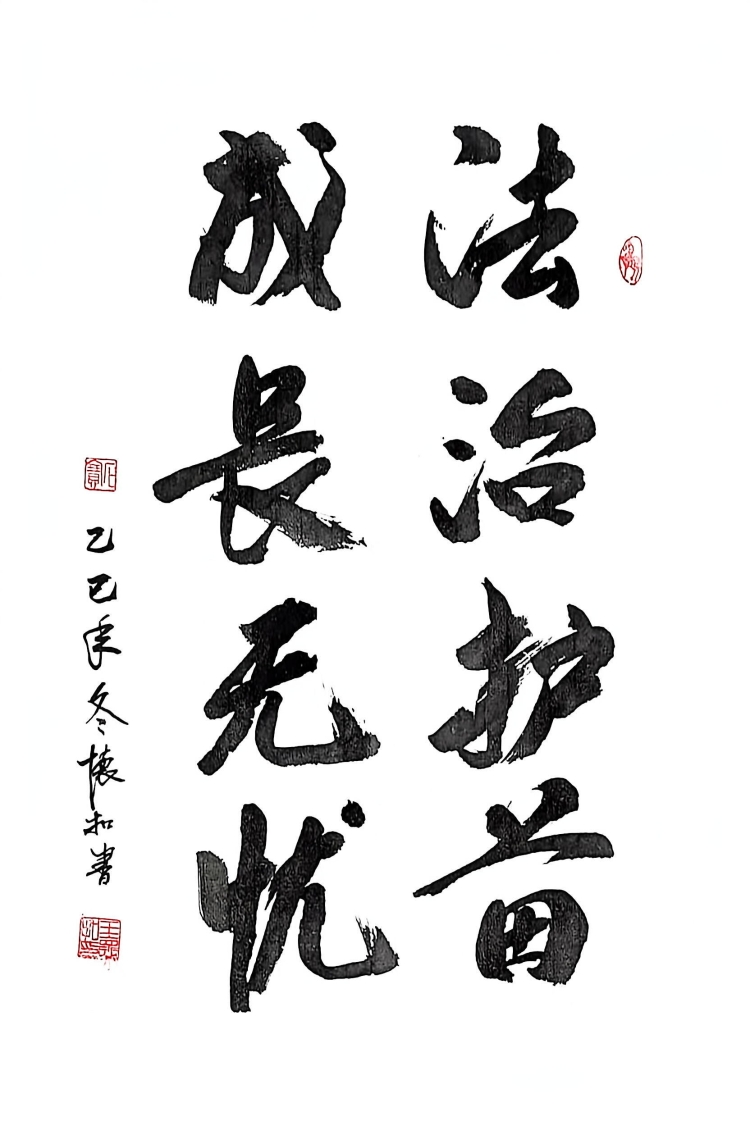 法治护苗
成長无忧
乙巳年冬懷和書